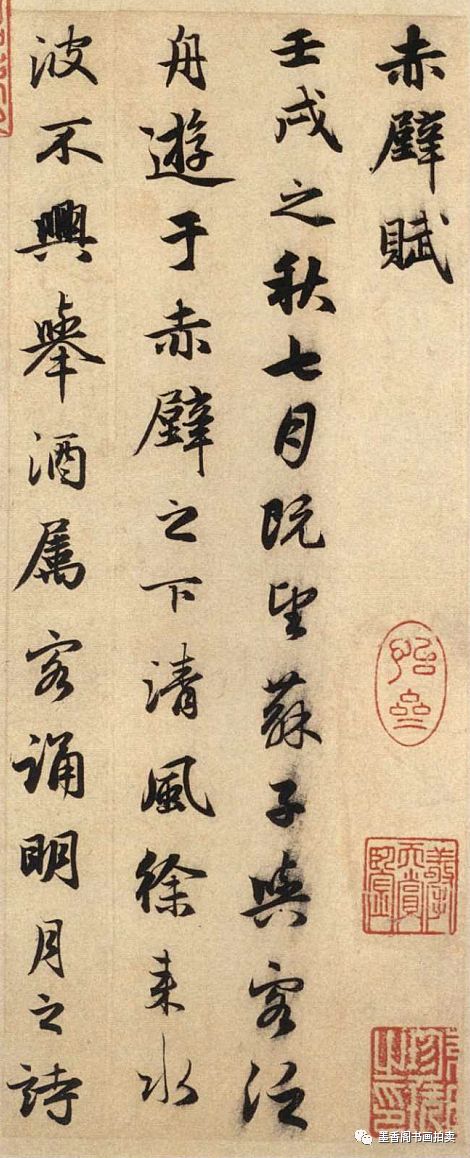 赤壁賦
壬戌之秋七月既望蘇子與客泛
舟遊于赤壁之下清風徐来水
波不興舉酒属客誦明月之詩
墨香阁书画拍卖